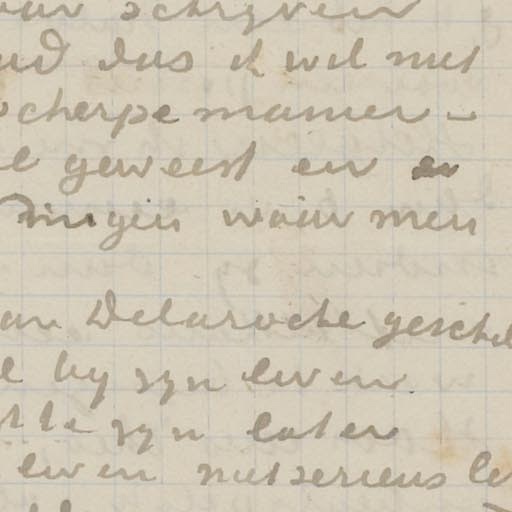 schryven
dus ik wil niet
scherpe manier –
geweest en en
dingen waar men
van Delaroche gesch
by zyn leven
zyn later
leven niet serieus le